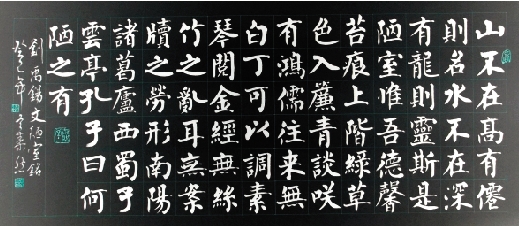 山不在高有僊
則名水不在深
有龍則靈斯是
陋室惟吾德馨
苔痕上階綠草
色入簾青談咲
有鴻儒往来無
白丁可以調素
琴閱金經無絲
竹之亂耳無案
牘之勞形南陽
諸葛廬西蜀子
雲亭孔子曰何
陋之有
劉禹錫文陋室銘
癸巳年